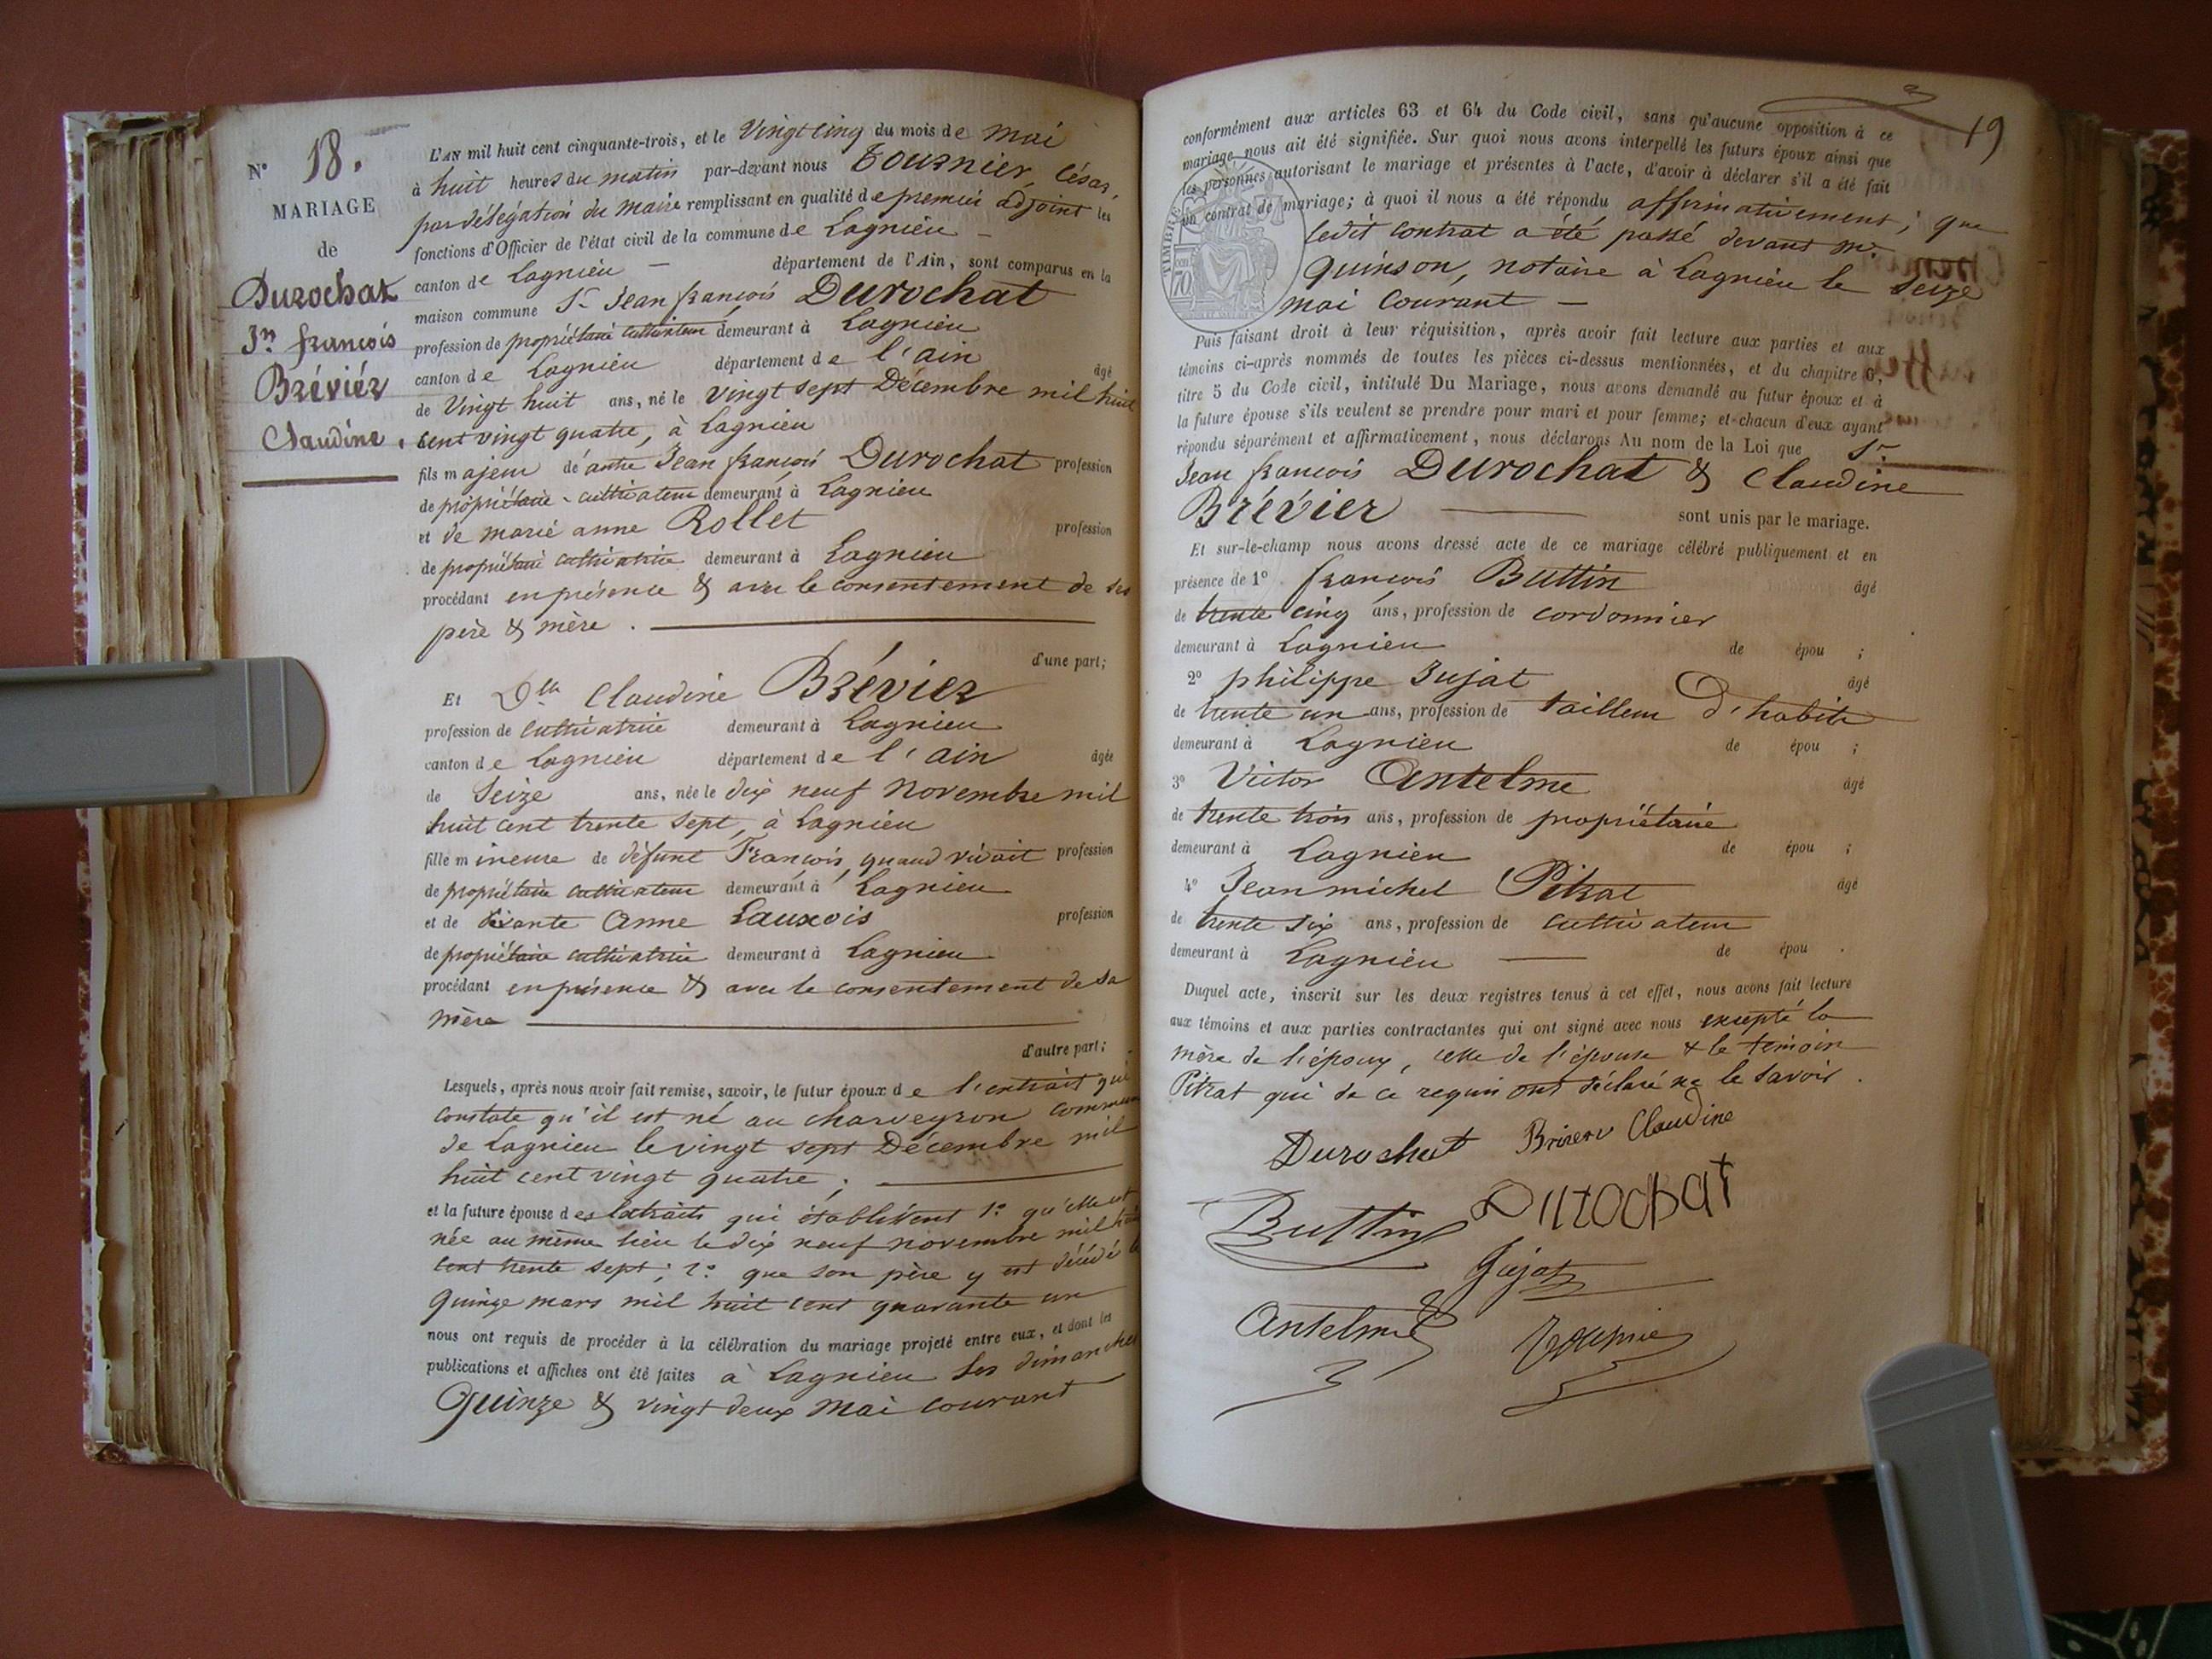 N° 18.
MARIAGE
de
Durochat
Jn françois
Bréviér
Claudine.
L'AN mil huit cent cinquante-trois, et le Vingt cinq du mois de mai
à huit heures du matin par-devant nous Tournier, César,
par délégation du maire remplissant en qualité de premier adjoint les
fonctions d'Officier de l'état civil de la commune de Lagnieu
canton de Lagnieu département de l'Ain, sont comparus en la
maison commune Sr Jean françois Durochat
profession de propriétaire cultivateur demeurant à Lagnieu
canton de Lagnieu département de l'ain âgé
de Vingt huit ans, né le vingt sept Décembre mil huit
cent vingt quatre, à Lagnieu
fils majeur de autre Jean françois Durochat profession
de propriétaire-cultivateur demeurant à Lagnieu
et de marie anne Rollet profession
de propriétaire cultivatrice demeurant à Lagnieu
procédant en présence & avec le consentement de ses
père & mère.
d'une part;
Et Dlle Claudine Brévier
profession de cultivatrice demeurant à Lagnieu
canton de Lagnieu département de l'ain âgée
de Seize ans, née le dix neuf Novembre mil
huit cent trente sept, à Lagnieu
fille mineure de défunt François, quand vivait profession
de propriétaire cultivateur demeurant à Lagnieu
et de vivante Anne Lauxois profession
de propriétaire cultivatrice demeurant à Lagnieu
procédant en présence & avec le consentement de sa
mère
d'autre part;
Lesquels, après nous avoir fait remise, savoir, le futur époux de l'extrait qui
constate qu'il est né au charveyron commune
de Lagnieu le vingt sept Décembre mil
huit cent vingt quatre;
et la future épouse des extraits qui établissent 1° qu'elle est
née au même lieu le dix neuf novembre mil huit
cent trente sept; 2° que son père y est décédé le
quinze mars mil huit cent quarante un
nous ont requis de procéder à la célébration du mariage projeté entre eux, et dont les
publications et affiches ont été faites à Lagnieu les dimanches
Quinze & vingt deux mai courant
19
conformément aux articles 63 et 64 du Code civil, sans qu'aucune opposition à ce
mariage nous ait été signifiée. Sur quoi nous avons interpellé les futurs époux ainsi que
les personnes autorisant le mariage et présentes à l'acte, d'avoir à déclarer s'il a été fait
un contrat de mariage; à quoi il nous a été répondu affirmativement; que
ledit contrat a été passé devant Me.
quinson, notaire à Lagnieu le seize
mai courant
TIMBRE
70
Puis faisant droit à leur réquisition, après avoir fait lecture aux parties et aux
témoins ci-après nommés de toutes les pièces ci-dessus mentionnées, et du chapitre 6,
titre 5 du Code civil, intitulé Du Mariage, nous avons demandé au futur époux et à
la future épouse s'ils veulent se prendre pour mari et pour femme; et chacun d'eux ayant
répondu séparément et affirmativement, nous déclarons Au nom de la Loi que Sr
Jean françois Durochat & Claudine
Brévier sont unis par le mariage.
Et sur-le-champ nous avons dressé acte de ce mariage célébré publiquement et en
présence de 1° françois Buttin âgé
de trente cinq ans, profession de cordonnier
demeurant à Lagnieu de épou ;
2° philippe Jujat âgé
de trente un ans, profession de tailleur D'habits
demeurant à Lagnieu de épou ;
3° Victor Antelme âgé
de trente trois ans, profession de propriétaire
demeurant à Lagnieu de épou ;
4° Jean michel Pitrat âgé
de trente six ans, profession de cultivateur
demeurant à Lagnieu de épou .
Duquel acte, inscrit sur les deux registres tenus à cet effet, nous avons fait lecture
aux témoins et aux parties contractantes qui ont signé avec nous excepté la
mère de l'époux, celle de l'épouse & le témoin
Pitrat qui de ce requis ont déclaré ne le savoir.
Durochat Claudine
Buttin Durochat
Jujat
Antelme Tournier